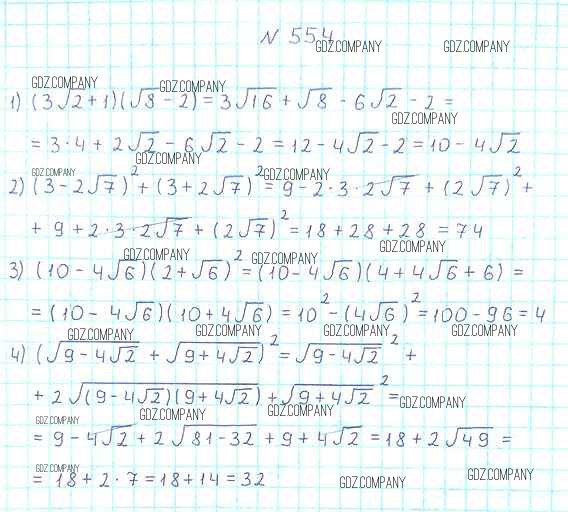 N 554
GDZ.COMPANY GDZ.COMPANY
GDZ.COMPANY GDZ.COMPANY
1) (3√2+1)(√8-2) = 3√16 + √8 - 6√2 - 2 =
GDZ.COMPANY
= 3·4 + 2√2 - 6√2 - 2 = 12 - 4√2 - 2 = 10 - 4√2
GDZ.COMPANY
GDZ.COMPANY GDZ.COMPANY
2) (3-2√7)² + (3+2√7)² = 9 - 2·3·2√7 + (2√7)² +
+ 9 + 2·3·2√7 + (2√7)² = 18 + 28 + 28 = 74
GDZ.COMPANY GDZ.COMPANY GDZ.COMPANY
3) (10 - 4√6)(2+√6)² = (10 - 4√6)(4 + 4√6 + 6) =
= (10 - 4√6)(10 + 4√6) = 10² - (4√6)² = 100 - 96 = 4
GDZ.COMPANY GDZ.COMPANY GDZ.COMPANY GDZ.COMPANY
4) (√(9-4√2) + √(9+4√2))² = √(9-4√2)² +
+ 2√((9-4√2)(9+4√2)) + √(9+4√2)² =
GDZ.COMPANY
GDZ.COMPANY GDZ.COMPANY GDZ.COMPANY
= 9 - 4√2 + 2√(81-32) + 9 + 4√2 = 18 + 2√49 =
GDZ.COMPANY GDZ.COMPANY GDZ.COMPANY
= 18 + 2·7 = 18 + 14 = 32